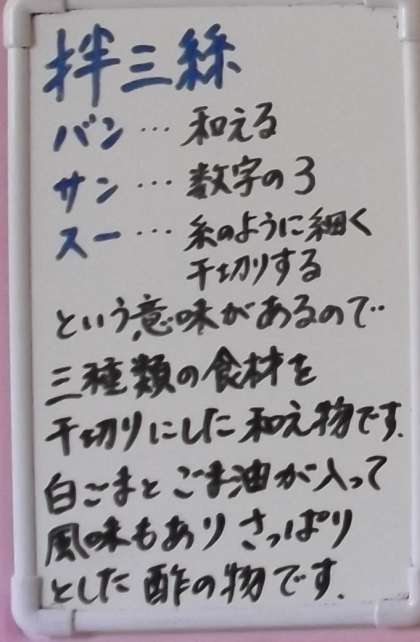 拌三絲
バン… 和える
サン… 数字の3
スー… 糸のように細く
千切りする
という意味があるので
三種類の食材を
千切りにした和え物です.
白ごまとごま油が入って
風味もありさっぱり
とした酢の物です.